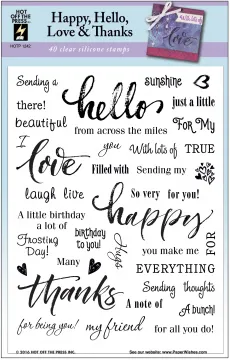 HOT OFF THE PRESS
HOTP 1242
Happy, Hello,
Love & Thanks
40 clear silicone stamps
With lots of
love
Sending a
sunshine
there!
hello
just a little
beautiful
For My
from across the miles
I
love
you
With lots of
TRUE
Filled with
Sending my
laugh
live
So very
for you!
A little birthday
a lot of
happy
Frosting
Day!
birthday
to you!
Hugs
you make me
FOR
Many
EVERYTHING
thanks
Sending
thoughts
A note of
A bunch!
for being you!
my friend
for all you do!
© 2016 HOT OFF THE PRESS INC.
See our website: www.PaperWishes.com